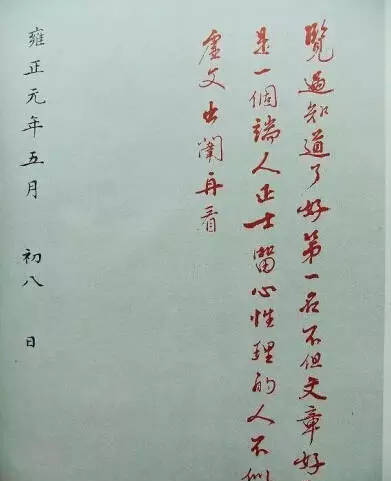 覽過知道了好第一名不但文章好
是一個端人正士留心性理的人不似
虛文出闈再看
雍正元年五月 初八 日